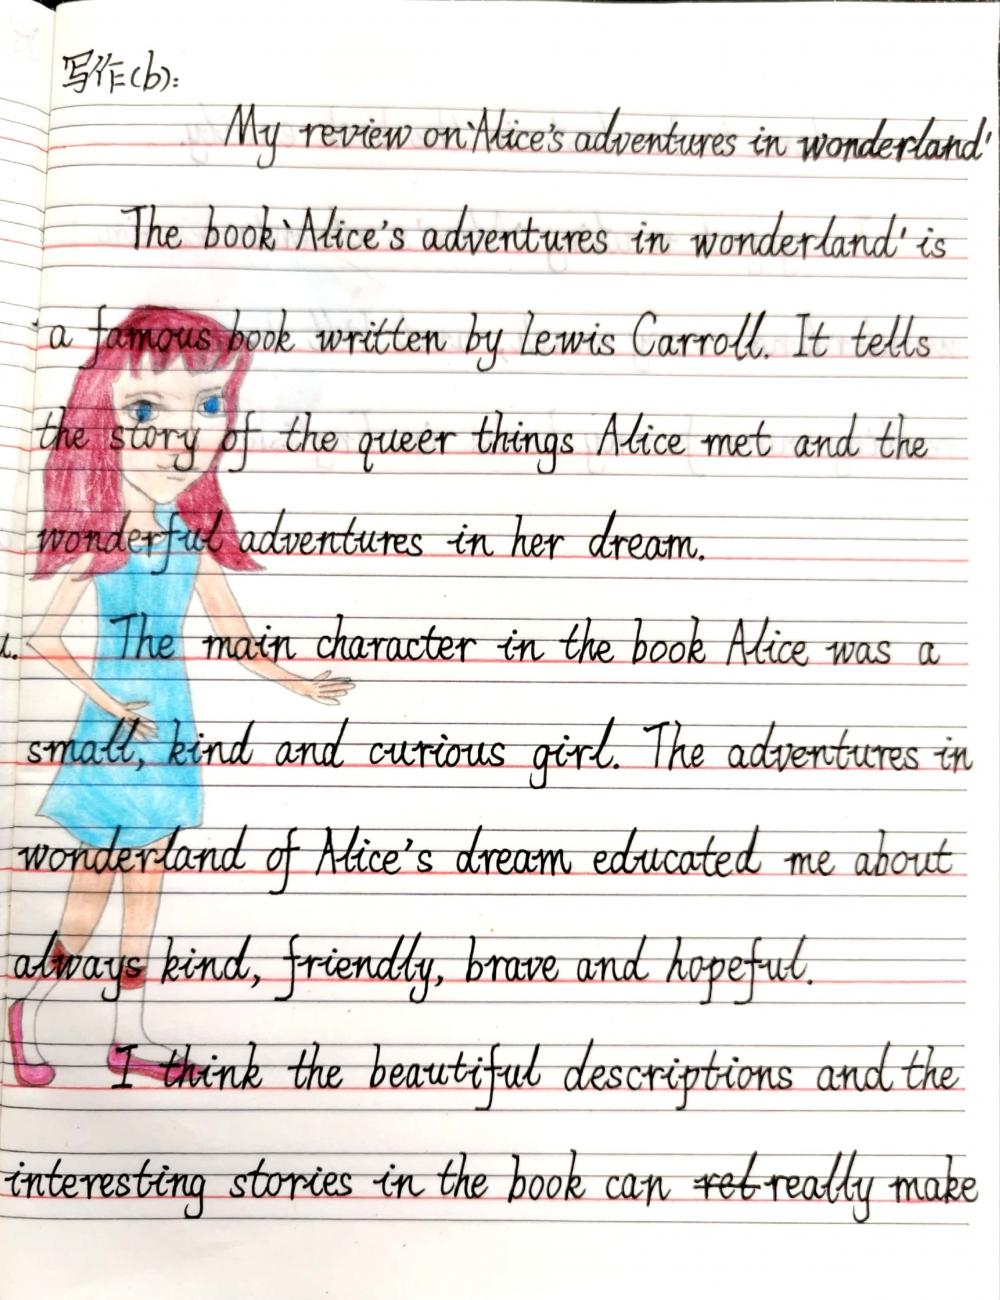 写作(b):
My review on 'Alice's adventures in wonderland'
The book 'Alice's adventures in wonderland' is
a famous book written by Lewis Carroll. It tells
the story of the queer things Alice met and the
wonderful adventures in her dream.
The main character in the book Alice was a
small, kind and curious girl. The adventures in
wonderland of Alice's dream educated me about
always kind, friendly, brave and hopeful.
I think the beautiful descriptions and the
interesting stories in the book can ret really make